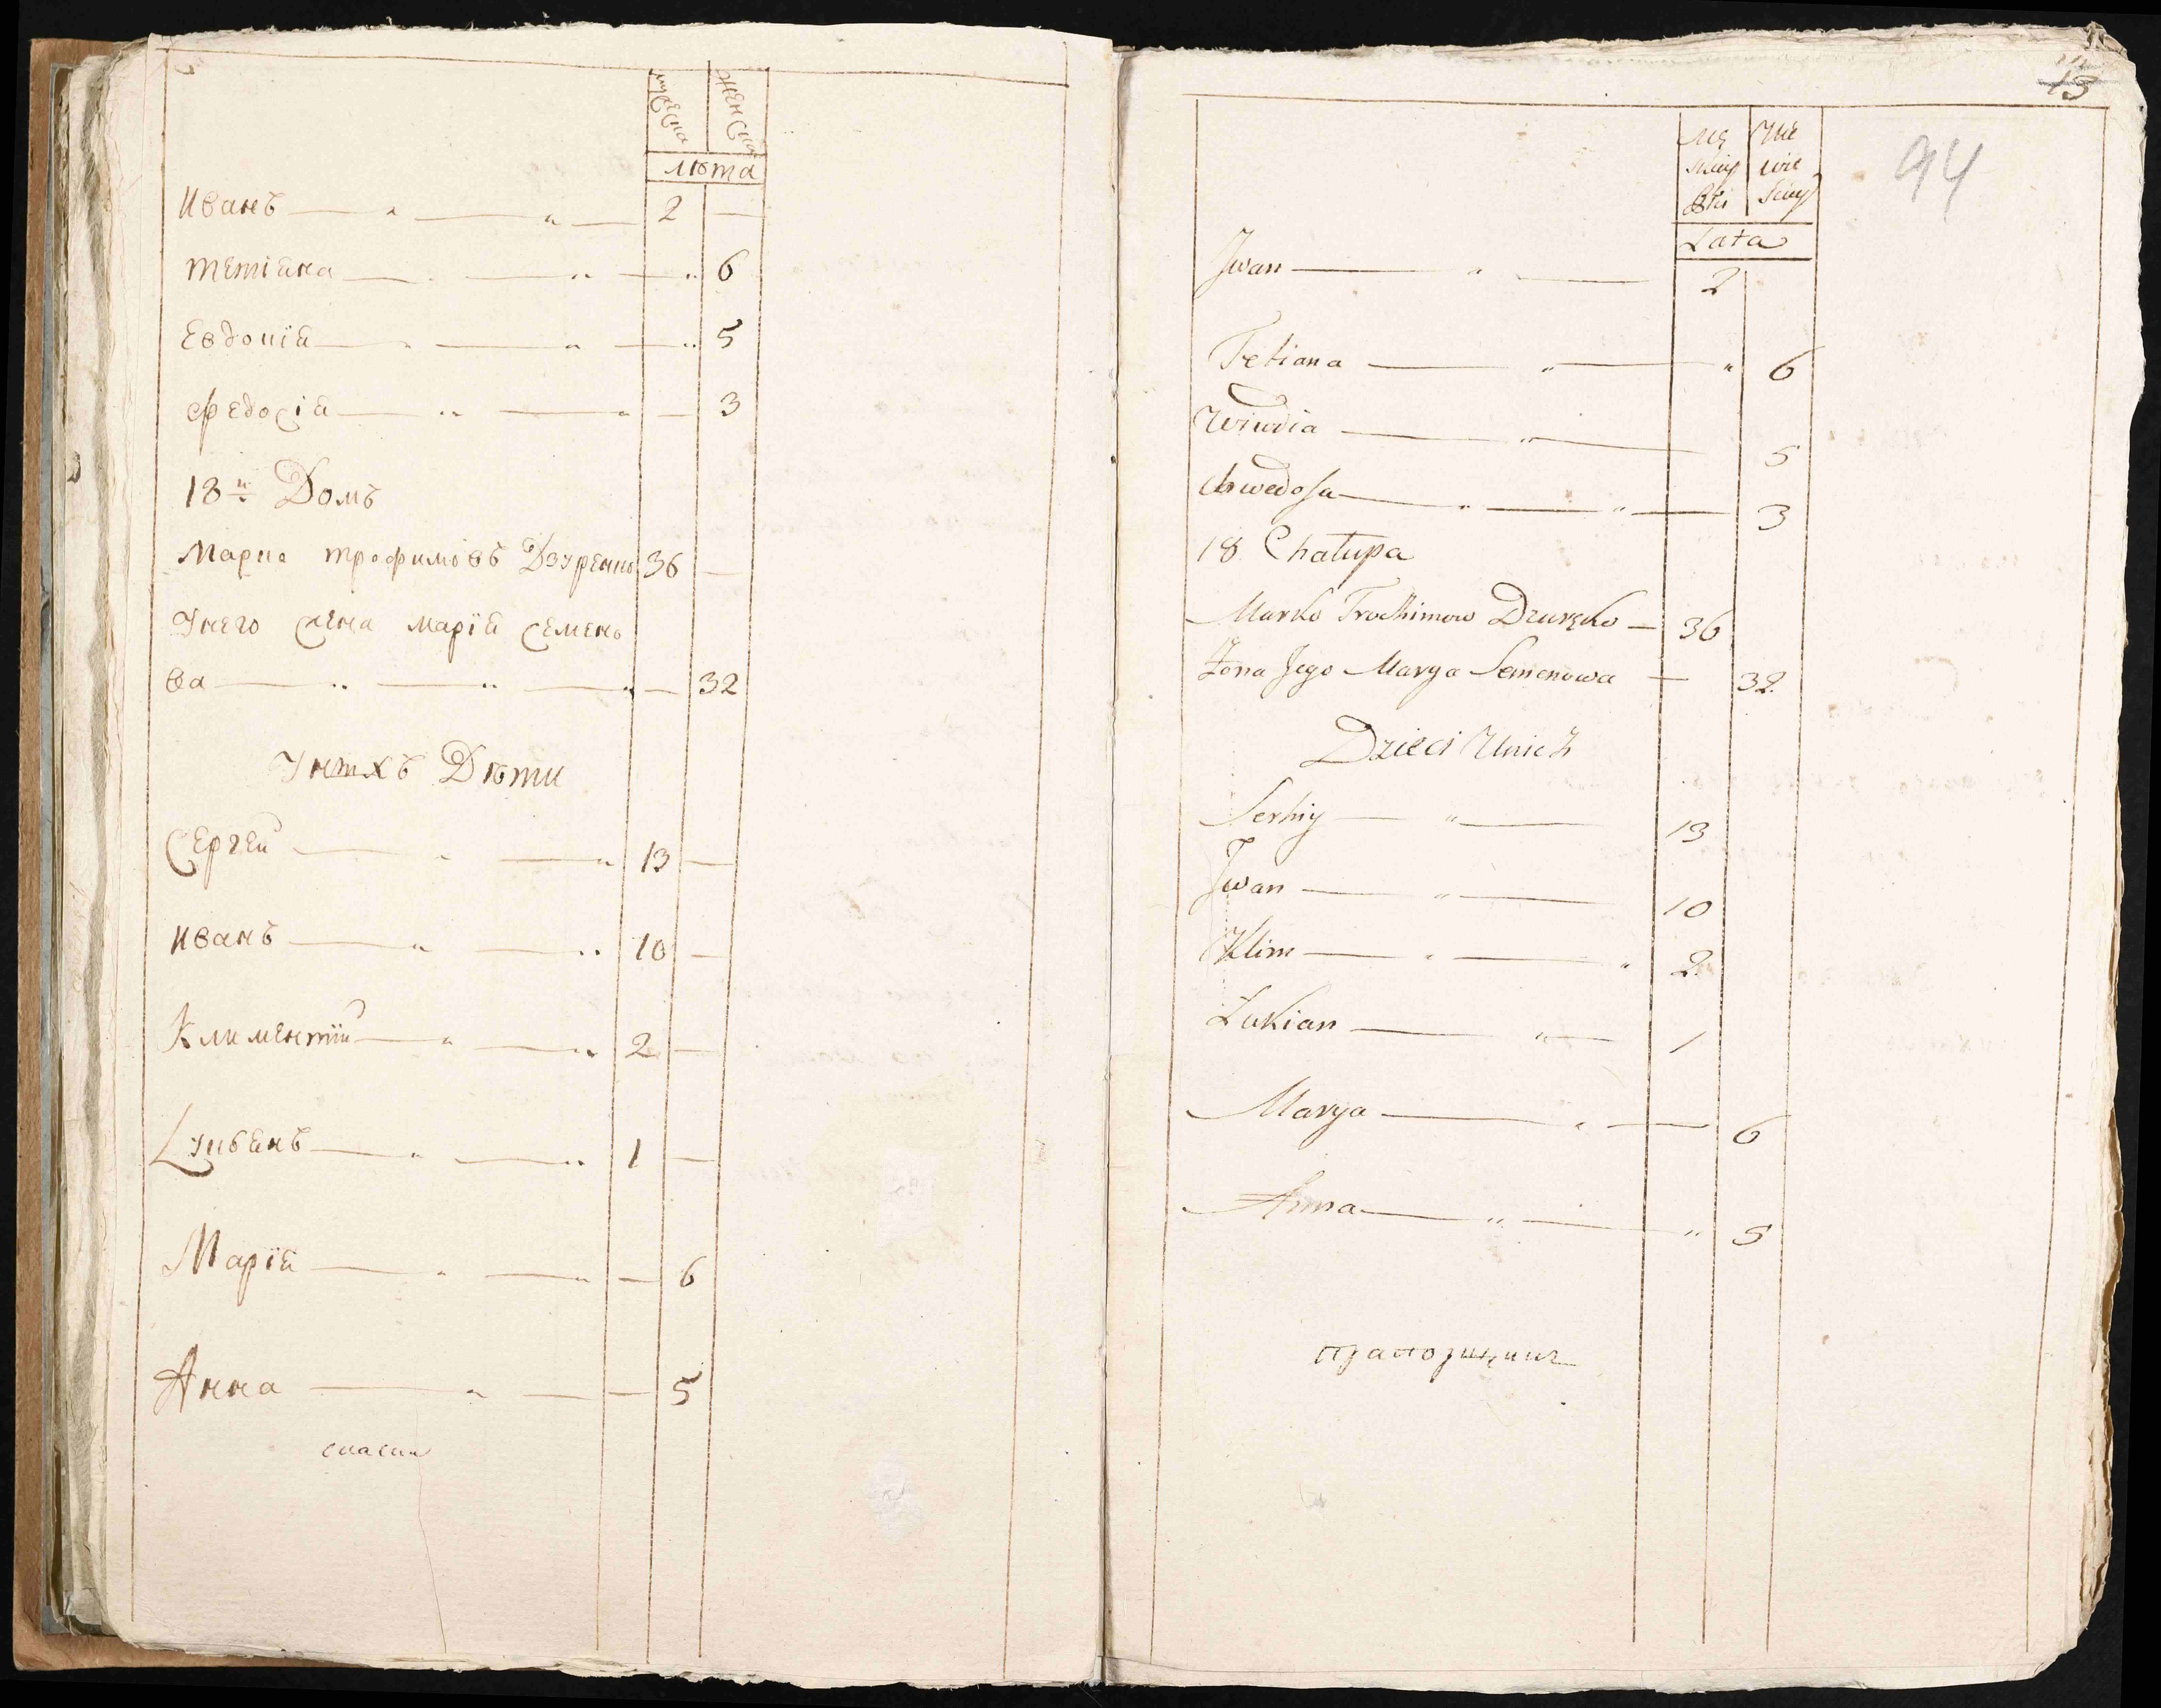 мужеска женска
лѣта
Иванъ 2
тетіана 6
Евдокіа 5
федосіа 3
18й Домъ
Марко трофимовъ Дзуренко 36
Унего жена маріа семено
ва 32
Унихъ Дѣти
Сергей 13
иванъ 10
Климентій 2
Лукіанъ 1
Маріа 6
Анна 5
13
94
Mę Że
Lata
Jwan 2
Tetiana 6
Wiwdia 5
Chwedosa 3
18 Chałupa
Marko Trochimow Dzuręko 36
Żona Jego Marya Semenowa 32
Dzieci Unich
Serhiy 13
Jwan 10
Klim 2
Łukian 1
Marya 6
Anna 5